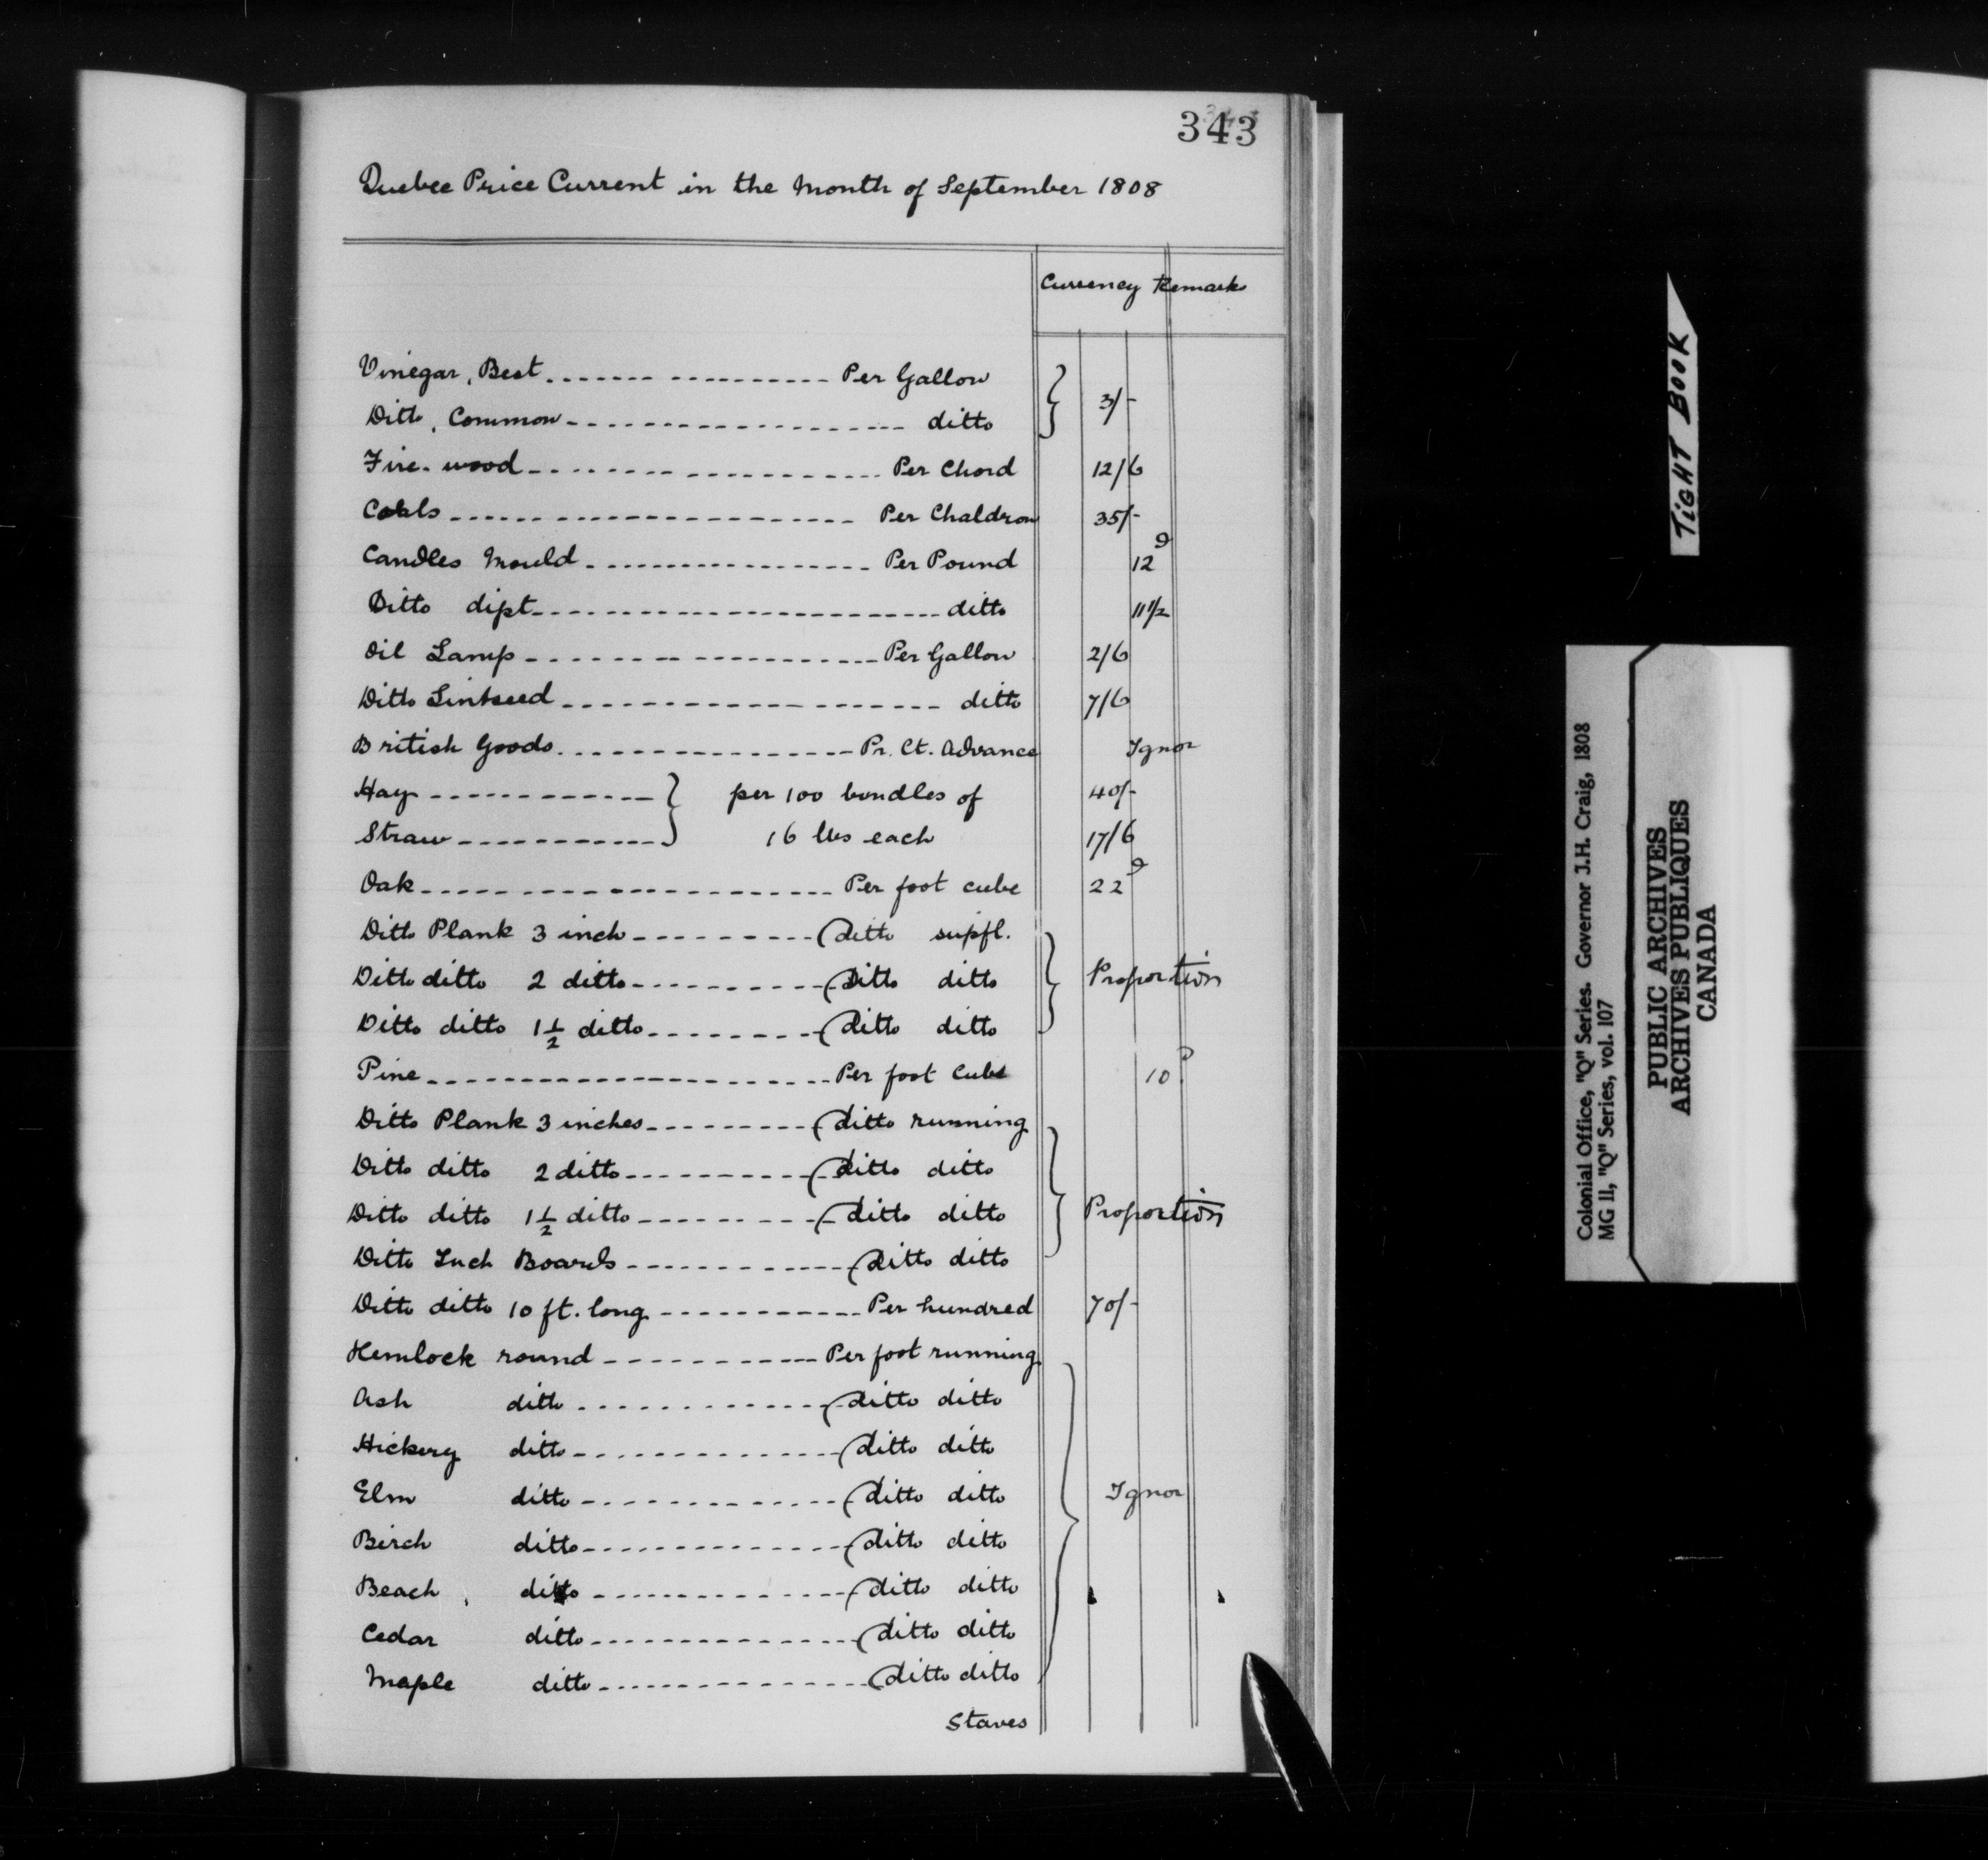 343
Quebec Price Current in the Month of September 1808
Currency Remarks
Vinegar, Best Per Gallon
Ditto, Common ditto } 3/-
Fire-wood Per Chord 12/6
Coals Per Chaldron 35/-
Candles Mould Per Pound 12d
Ditto dipt ditto 11 1/2
Oil Lamp Per Gallon 2/6
Ditto Lintseed ditto 7/6
British Goods Pr. Ct. Advance Ignor
Hay } per 100 bundles of 40/-
Straw } 16 lbs each 17/6
Oak Per foot cube 22d
Ditto Plank 3 inch ditto supfl.
Ditto ditto 2 ditto Ditto ditto } Proportion
Ditto ditto 1 1/2 ditto ditto ditto
Pine Per foot Cube 10d
Ditto Plank 3 inches ditto running
Ditto ditto 2 ditto ditto ditto
Ditto ditto 1 1/2 ditto ditto ditto } Proportion
Ditto Inch Boards ditto ditto
Ditto ditto 10 ft. long Per hundred 70/-
Hemlock round Per foot running
Ash ditto ditto ditto
Hickery ditto ditto ditto
Elm ditto ditto ditto } Ignor
Birch ditto ditto ditto
Beach, ditto ditto ditto
Cedar ditto ditto ditto
Maple ditto ditto ditto
Staves
TIGHT BOOK
Colonial Office, "Q" Series. Governor J.H. Craig, 1808
MG 11, "Q" Series, vol. 107
PUBLIC ARCHIVES
ARCHIVES PUBLIQUES
CANADA